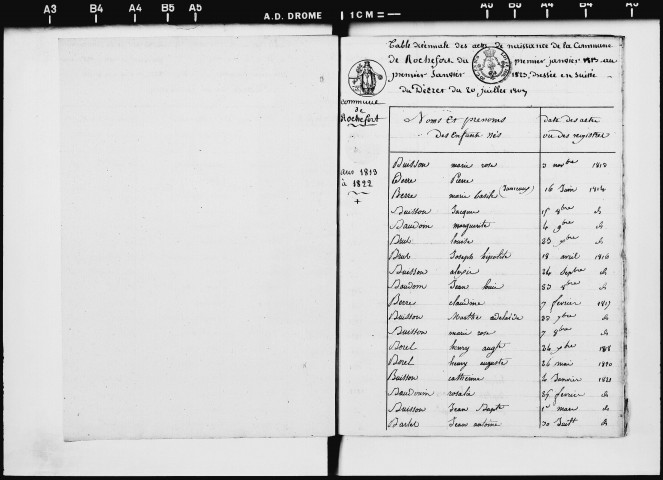 A3 B4 A4 B5 A5
A.D. DROME
1 CM
A5 B5 A4 B4 A3
Table décennale des actes de naissance de la Commune
de Rochefort du premier janvier 1813 au
premier Janvier 1823, dressée en suite
du Décret du 20 juillet 1807
Commune
de
Rochefort
ans 1813
à 1822
Noms Et prenoms
Des Enfants nés
date des actes
ou des registres
Buisson marie rose 3 novbre 1813
Berre Pierre
Berre marie (Jumeaux) 16 Juin 1814
Buisson Jacque 15 8bre d
Baudom marguerite 4 9bre d
Brut louise 23 xbre d
Brut Joseph hipolite 18 avril 1816
Buisson alexis 24 septbre d
Baudom Jean louis 8bre d
Berre claudine 7 fevrier 1817
Buisson Marthe adelaide d
Buisson marie rose 7 8bre d
Borel henry augte 24 xbre 1818
Borel henry auguste 26 mai 1820
Buisson catherine 4 Janvier 1821
Baudouin rosalie 25 fevrier d
Buisson Jean Bapte 1er mars d
Barlet Jean antoine 30 Juillt d